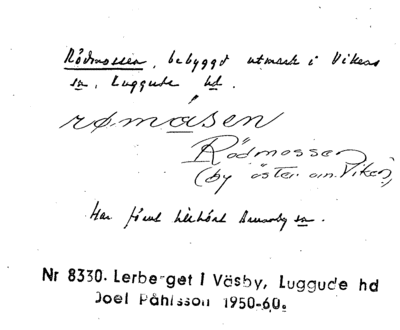 Rödmossen, bebyggd utmark i Vikens
sn, Luggude hd.
rømasen
Rödmossen
(by öster om Viken)
Har förut tillhört Brunnby sn.
Nr 8330. Lerberget i Väsby, Luggude hd
Joel Påhlsson 1950-60.